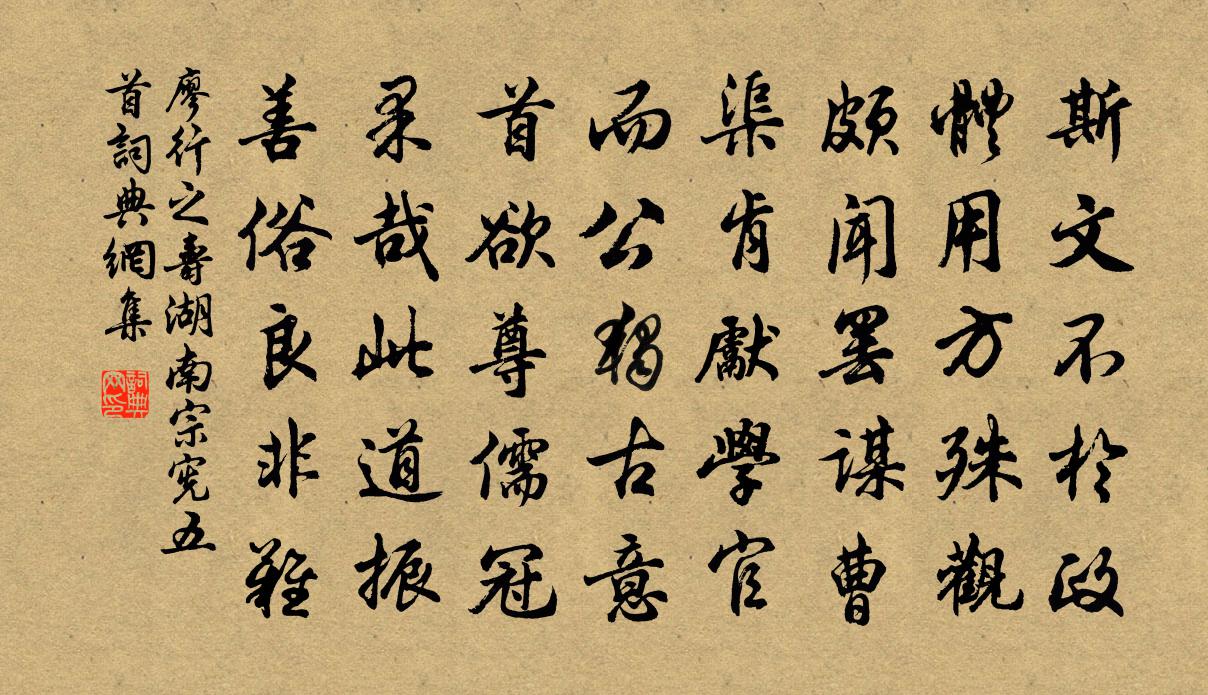 斯文不於政
體用方殊觀
頗聞罢謀曹
渠肯獻學官
而公獨古意
首欲尊儒冠
果哉此道振
善俗良非難
廖行之壽湖南宗憲五
首詞典網集
詞典網印